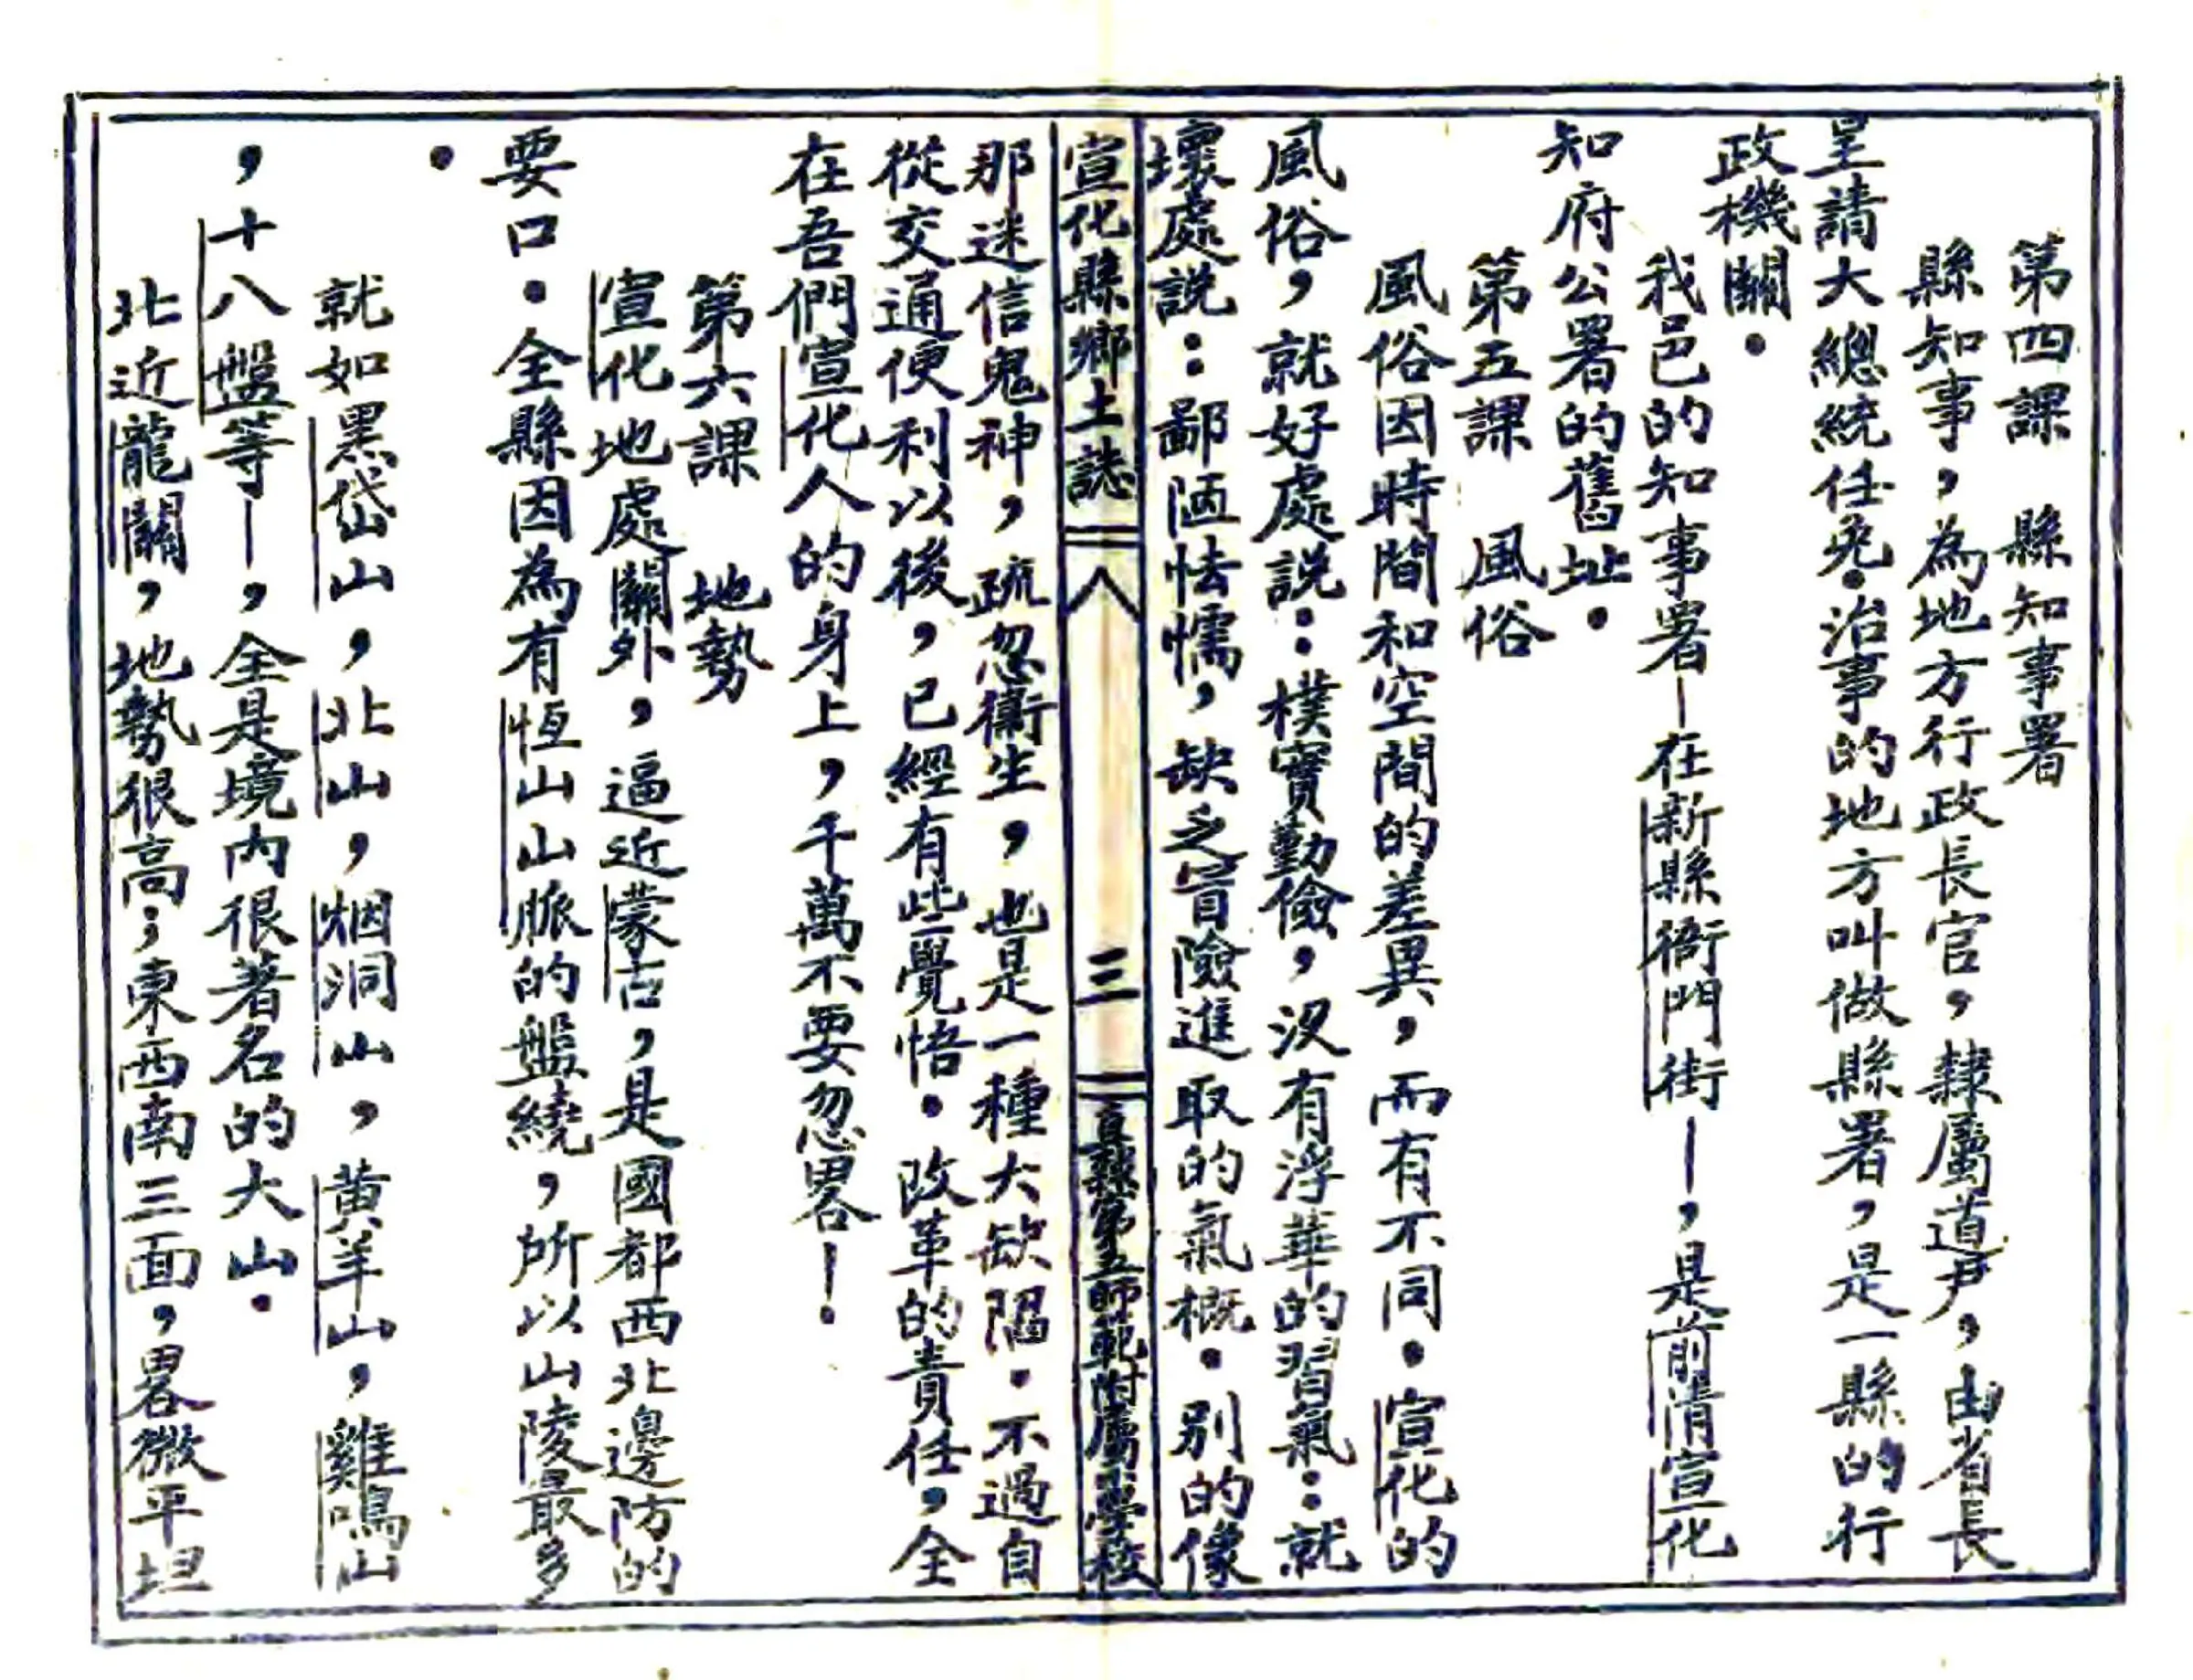 第四課　縣知事署
縣知事，為地方行政長官，隸屬道尹，由省長
呈請大總統任免．治事的地方叫做縣署，是一縣的行
政機關．
我邑的知事署—在新縣衙門街—，是前清宣化
知府公署的舊址．
第五課　風俗
風俗因時間和空間的差異，而有不同．宣化的
風俗，就好處説：樸實勤儉，沒有浮華的習氣：就
壞處説：鄙陋怯懦，缺乏冒險進取的氣概．别的像
宣化縣鄉土誌　八　三　直隸第五師範附屬小學校
那迷信鬼神，疏忽衞生，也是一種大缺陷．不過自
從交通便利以後，已經有些覺悟．改革的責任，全
在吾們宣化人的身上，千萬不要忽畧！
第六課　地勢
宣化地處關外，逼近蒙古，是國都西北邊防的
要口．全縣因為有恆山山脈的盤繞，所以山陵最多
．
就如黑岱山，北山，烟洞山，黄羊山，雞鳴山
，十八盤等—，全是境内很著名的大山．
北近龍關，地勢很高；東西南三面，畧微平坦